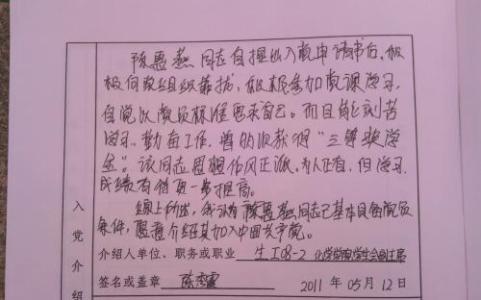 陈惠燕同志自提出入党申请书后，积
极向党组织靠拢，积极参加党课学习，
自觉以党员标准要求自己。而且能刻苦
学习，勤奋工作，曾明收获得“三等奖学
金”。该同志思想作风正派，为人正直，但学习
成绩有待更一步提高。
综上所述，我认为陈惠燕同志已基本具备党员
条件，愿意介绍其加入中国共产党。
入
党
介
绍
介绍人单位、职务或职业 生工08-2 化学学院学生会副主席
签名或盖章 陈
2011 年 05 月 12 日